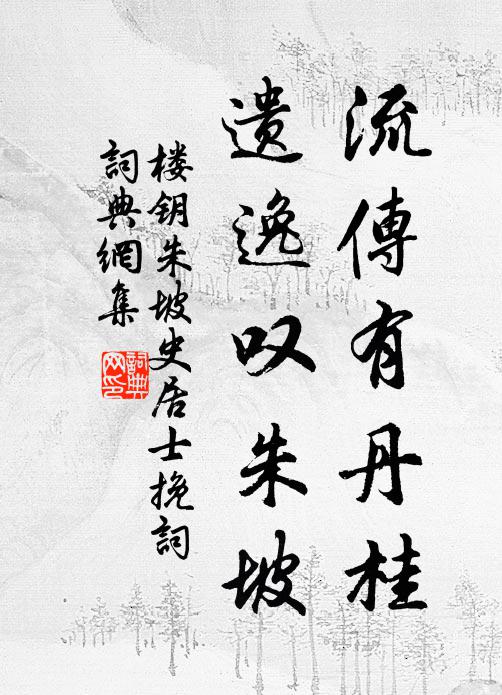 流傳有丹桂
遗逸叹朱坡
楼钥朱坡史居士挽詞
詞典網集
詞典
网印